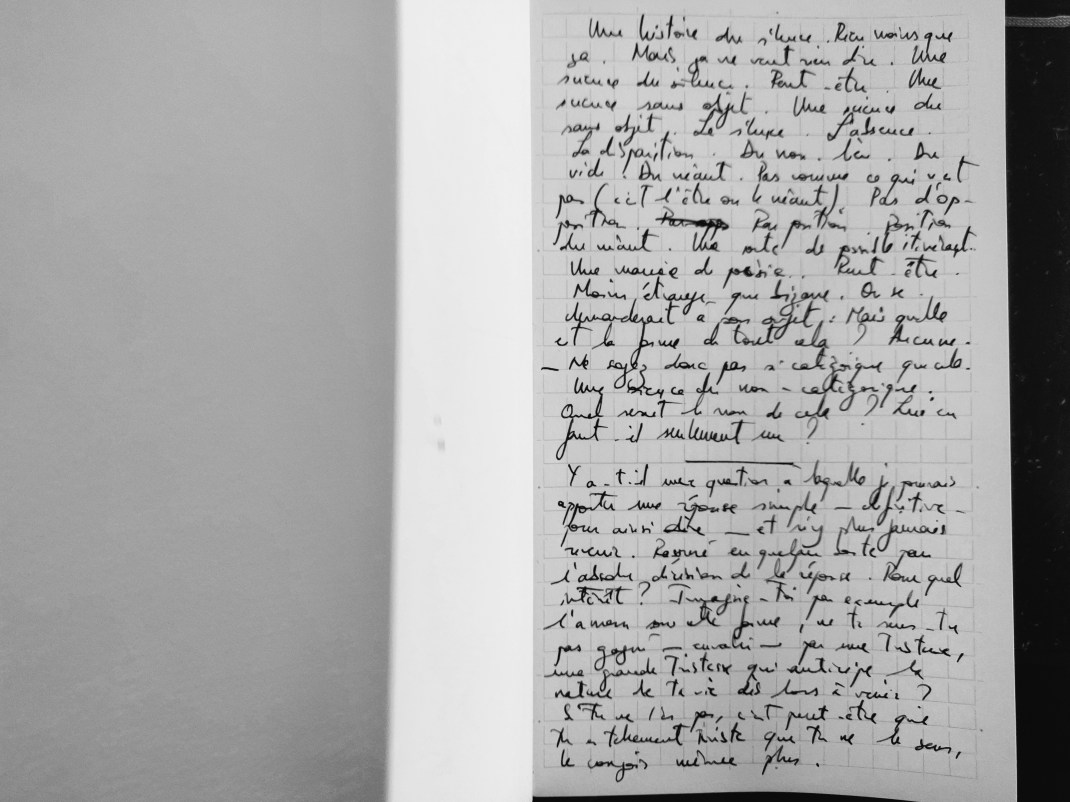 Une histoire du silence. Rien moins que
ça. Mais ça ne veut rien dire. Une
science du silence. Peut-être. Une
science sans objet. Une science du
sans objet. Le silence. L'absence.
La disparition. Du non. lieu. Du
vide. Du néant. Pas comme ce qui n'est
pas (c'est l'être ou le néant). Pas d'op-
position. Pas position Position
du néant. Une sorte de possible itinérant.
Une manière de poésie. Peut-être.
Moins étrange que bizarre. On se
demanderait à son sujet : Mais quelle
est la forme de tout cela ? Aucune.
— Ne soyez donc pas si catégorique que cela.
Une science du non-catégorique.
Quel serait le nom de cela ? Lui en
faut-il seulement un ?
Y a-t-il une question à laquelle je pourrais
apporter une réponse simple — définitive —
pour ainsi dire — et n'y plus jamais
revenir. Rassuré en quelque sorte par
l'absolue de la réponse. Pour quel
intérêt ? Imagine-toi par exemple
l'amour sous cette forme, ne te sens-tu
pas gagné — envahi — par une Tristesse,
une grande Tristesse qui anticipe la
nature de ta vie dès lors à venir ?
Si Tu ne l'es pas, c'est peut-être que
Tu es tellement triste que Tu ne le sens,
le conçois même plus.